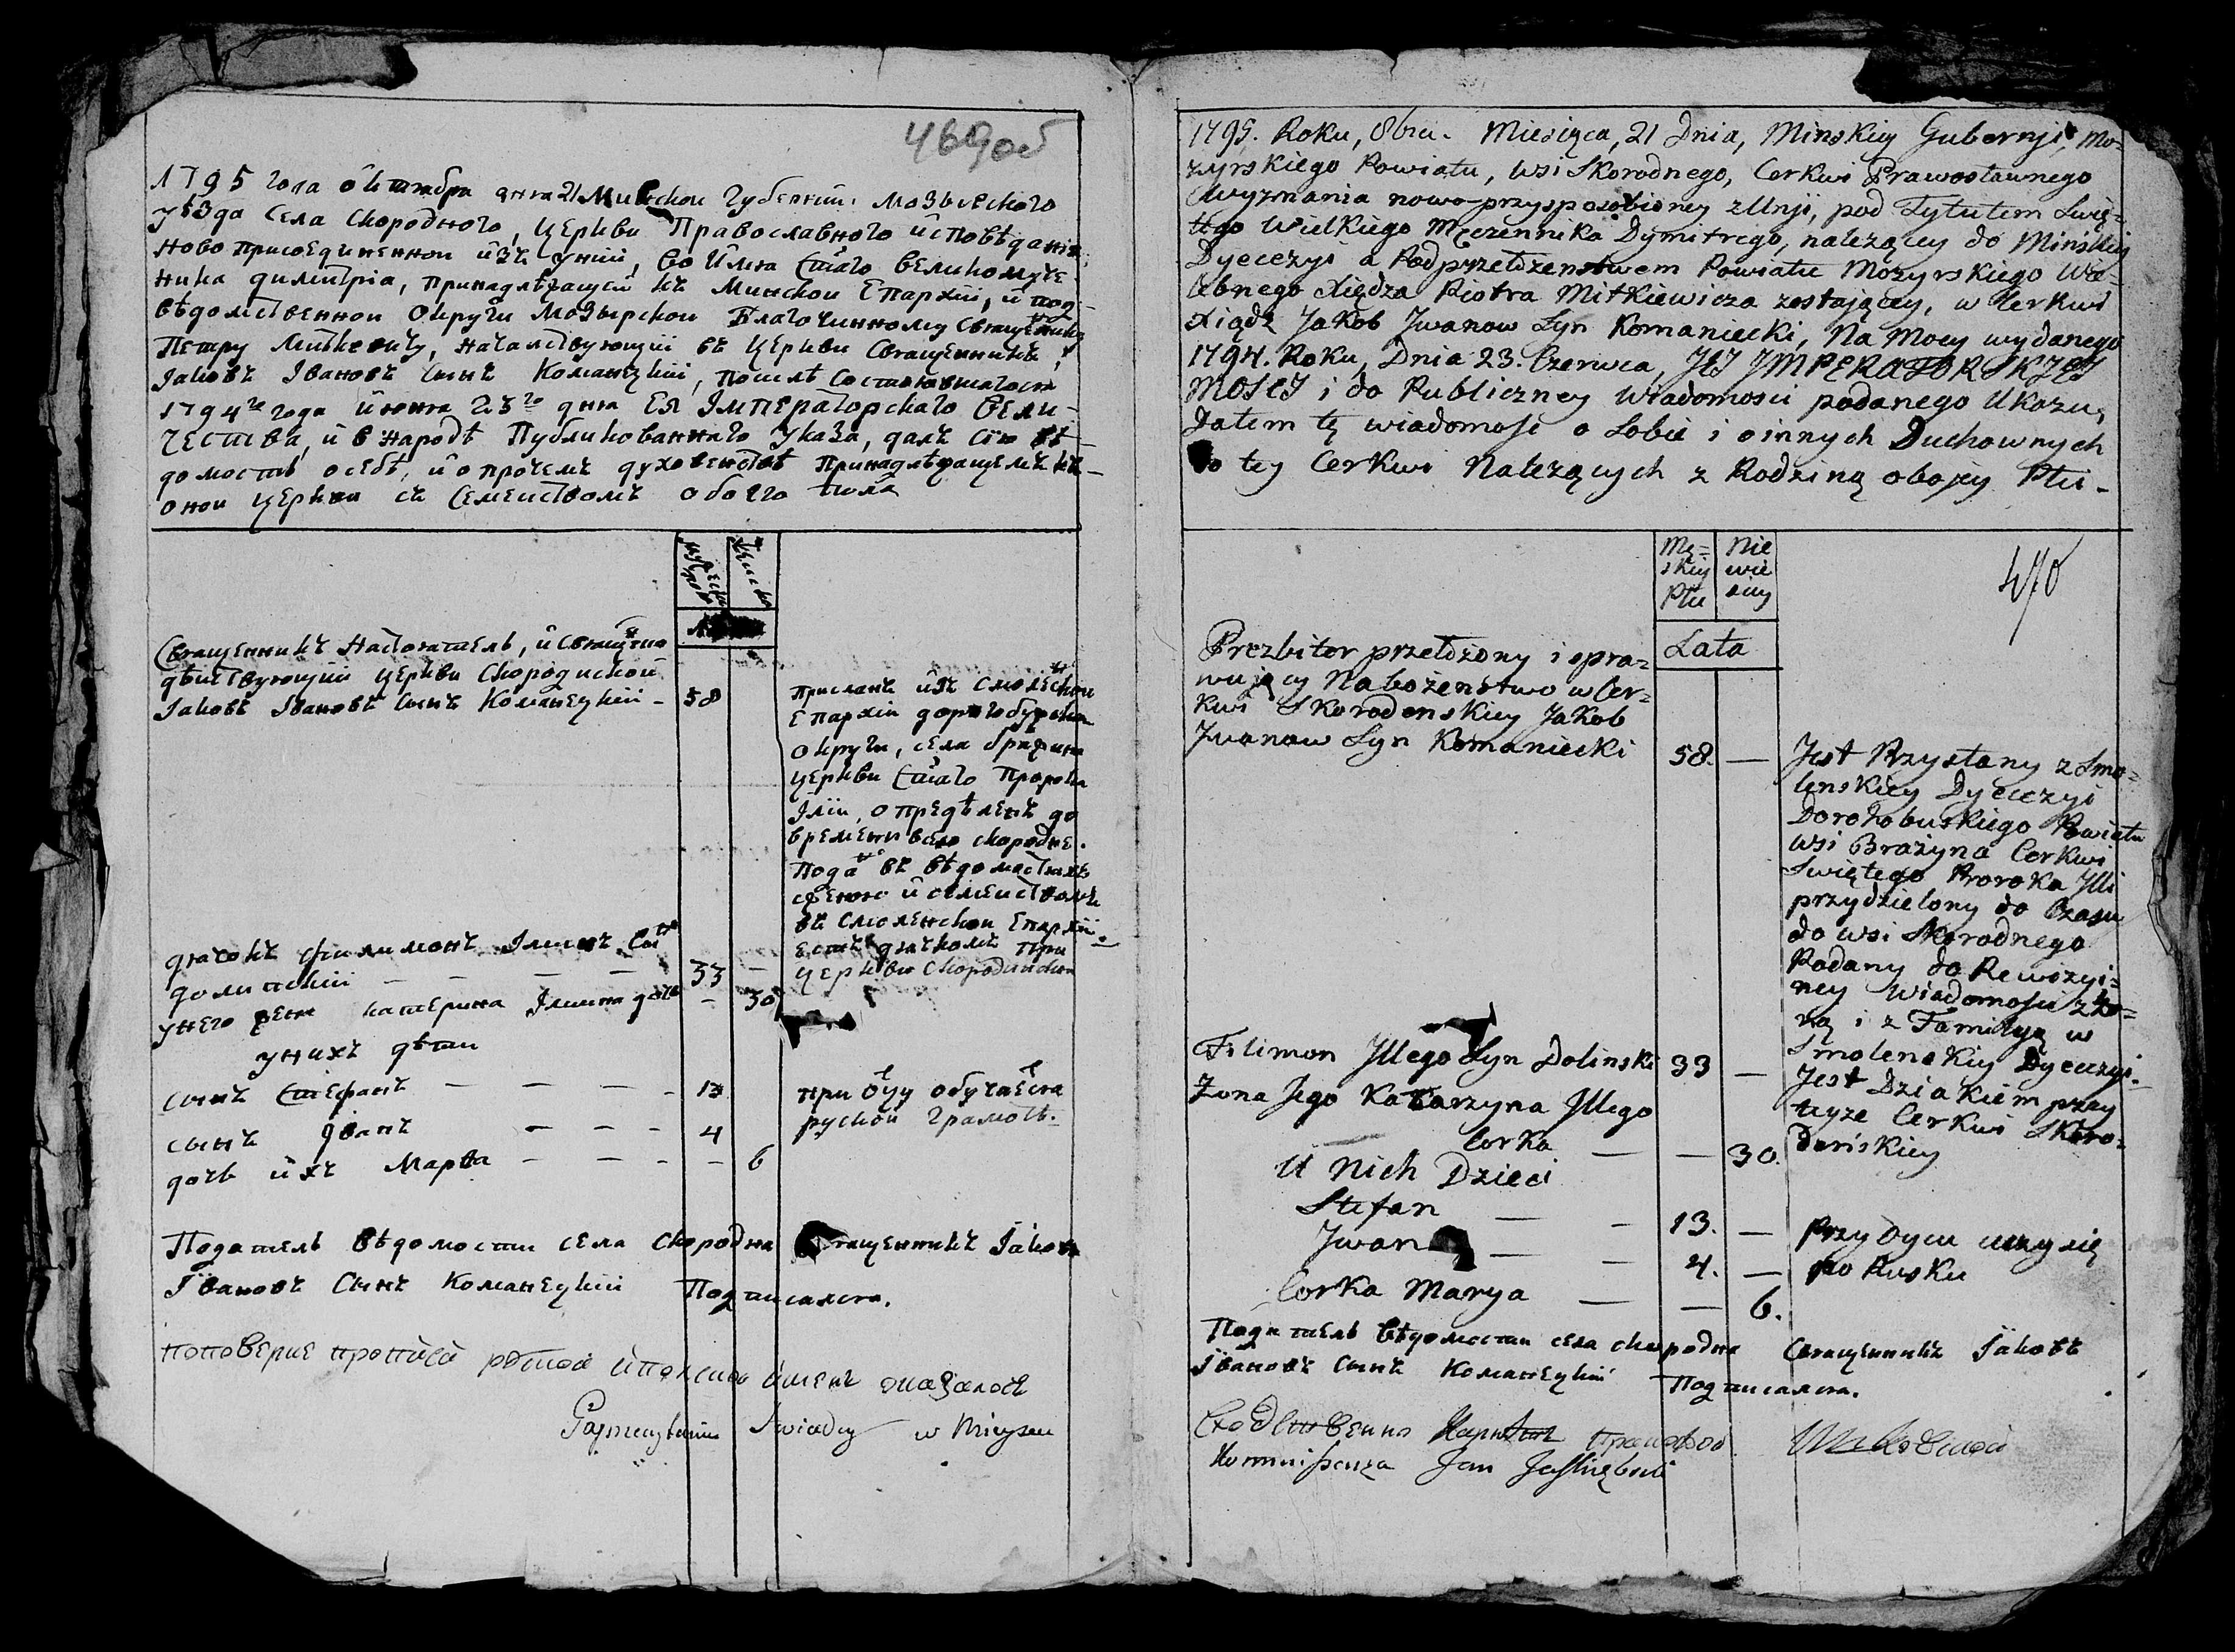 469об
1795 года октября дня 21 Минской Губернии, Мозырского
уѣзда села Скородного, церкви Православного исповѣданія
новоприсоединенной изъ унии, во имя Стаго великомуче-
ника Димитрія, принадлѣжащей къ Минской Епархіи, и под-
вѣдомственной округи Мозырской Благочинному Священнику
Петру Миткевичу, началствующий въ церкви Священникъ
Іаковъ Ивановъ сынъ Команецкий, послѣ состоявшагося
1794го года июня 23го дня Ея Императорскаго Вели-
чества, и в народѣ Публикованнаго Указа, далъ сию вѣ-
домость о себѣ, и о прочемъ духовенствѣ принадлѣжащемъ къ
оной церкви съ семействомъ обоего пола
Мужеска Женска
Священникъ Настоятель, и священно
дѣйствующий церкви Скородиской
Іаковъ Ивановъ сынъ Команецкий - 58
присланъ изъ Смоленской
Епархіи Дорогобужской
округи, села Бражина
церкви Стаго Пророка
Іліи, опредѣленъ до
времени в село Скородне.
подан въ вѣдомостяхъ
с женою и семействомъ
въ Смоленской Епархіи.
дьячокъ Филимонъ Ілиинъ сынъ
долинский - - - 33 -
есть дьячкомъ при
церкви Скородинской
у него жена катерина Ілиина дочь - 30
у нихъ дѣти
сынъ Стефанъ - - - - 13
при отцу обучается
руской грамотѣ.
сынъ Іванъ - - - 4
дочь ихъ Марѳа - - - - 6
Податель вѣдомости села Скородна Священникъ Іаковъ
Івановъ Сынъ Команецкий Подписался.
w Mieyscu
1795. Roku, 8bra. Miesiąca, 21 Dnia, Minskiey Gubernji, Mo-
zyrskiego Powiatu, Wsi Skorodnego, Cerkwi Prawosławnego
wyznania nowo-przysposobioney z Unji, pod Tytułem Swię-
tego Wielkiego Męczennika Dymitrego, należącey do Minskiey
Dyecezyi a Pod przełożenstwem Powiatu Mozyrskiego Wie-
lebnego Xiędza Piotra Mitkiewicza zostającey, w Cerkwi
Xiądz Jakob Jwanow Syn Komaniecki, Na Mocy wydanego
1794. Roku, Dnia 23. Czerwca, JEJ JMPERATORSKIEJ
MOSCJ i do Publiczney Wiadomosci podanego Ukazu,
Dałem tę wiadomość o Sobie i o innych Duchownych
Do tey Cerkwi Należących z Rodziną obojey Płci -
Mę=
skiey
Płci
Nie
wie
sciey
470
Lata
Prezbiter przełożony i spra=
wujący Nabożeństwo w Cer=
kwi Skorodenskiey Jakob
Jwanow Syn Komaniecki 58. -
Jest Przysłany z Smo=
lenskiey Dyecezyi
Dorohobuskiego Powiatu
Wsi Brażyna Cerkwi
Swiętego Proroka Jlli
przydzielony do Czasu
do wsi Skorodnego
Podany do Rewizyi=
ney Wiadomości z Żo=
ną i z Familyą w
Smolenskiey Dyecezyi.
Filimon Jllego Syn Dolinski 33 -
Jest Dziakiem przy
teyze Cerkwi Skoro=
deńskiey
Żona Jego Katarzyna Jllego
Corka - - 30.
U Nich Dzieci
Stefan - - 13. -
przy Oycu uczy się
po Rusku
Jwan - - 4. -
Corka Marya - - 6.
Податель вѣдомости села Скородна Священникъ Іаковъ
Івановъ Сынъ Команецкий Подписался.
Jan